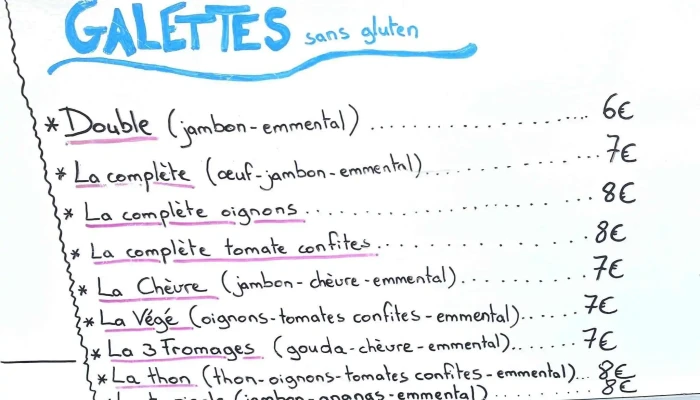 GALETTES sans gluten
* Double (jambon-emmental) .................... 6€
* La complète (œuf-jambon-emmental).................. 7€
* La complète oignons.......................... 8€
* La complète tomate confites.................. 8€
* La Chèvre (jambon-chèvre-emmental)............. 7€
* La Végé (oignons-tomates confites-emmental)...... 7€
* La 3 Fromages (gouda-chèvre-emmental)........ 7€
* La thon (thon-oignons-tomates confites-emmental)... 8€
(jambon-ananas-emmental) .......... 8€